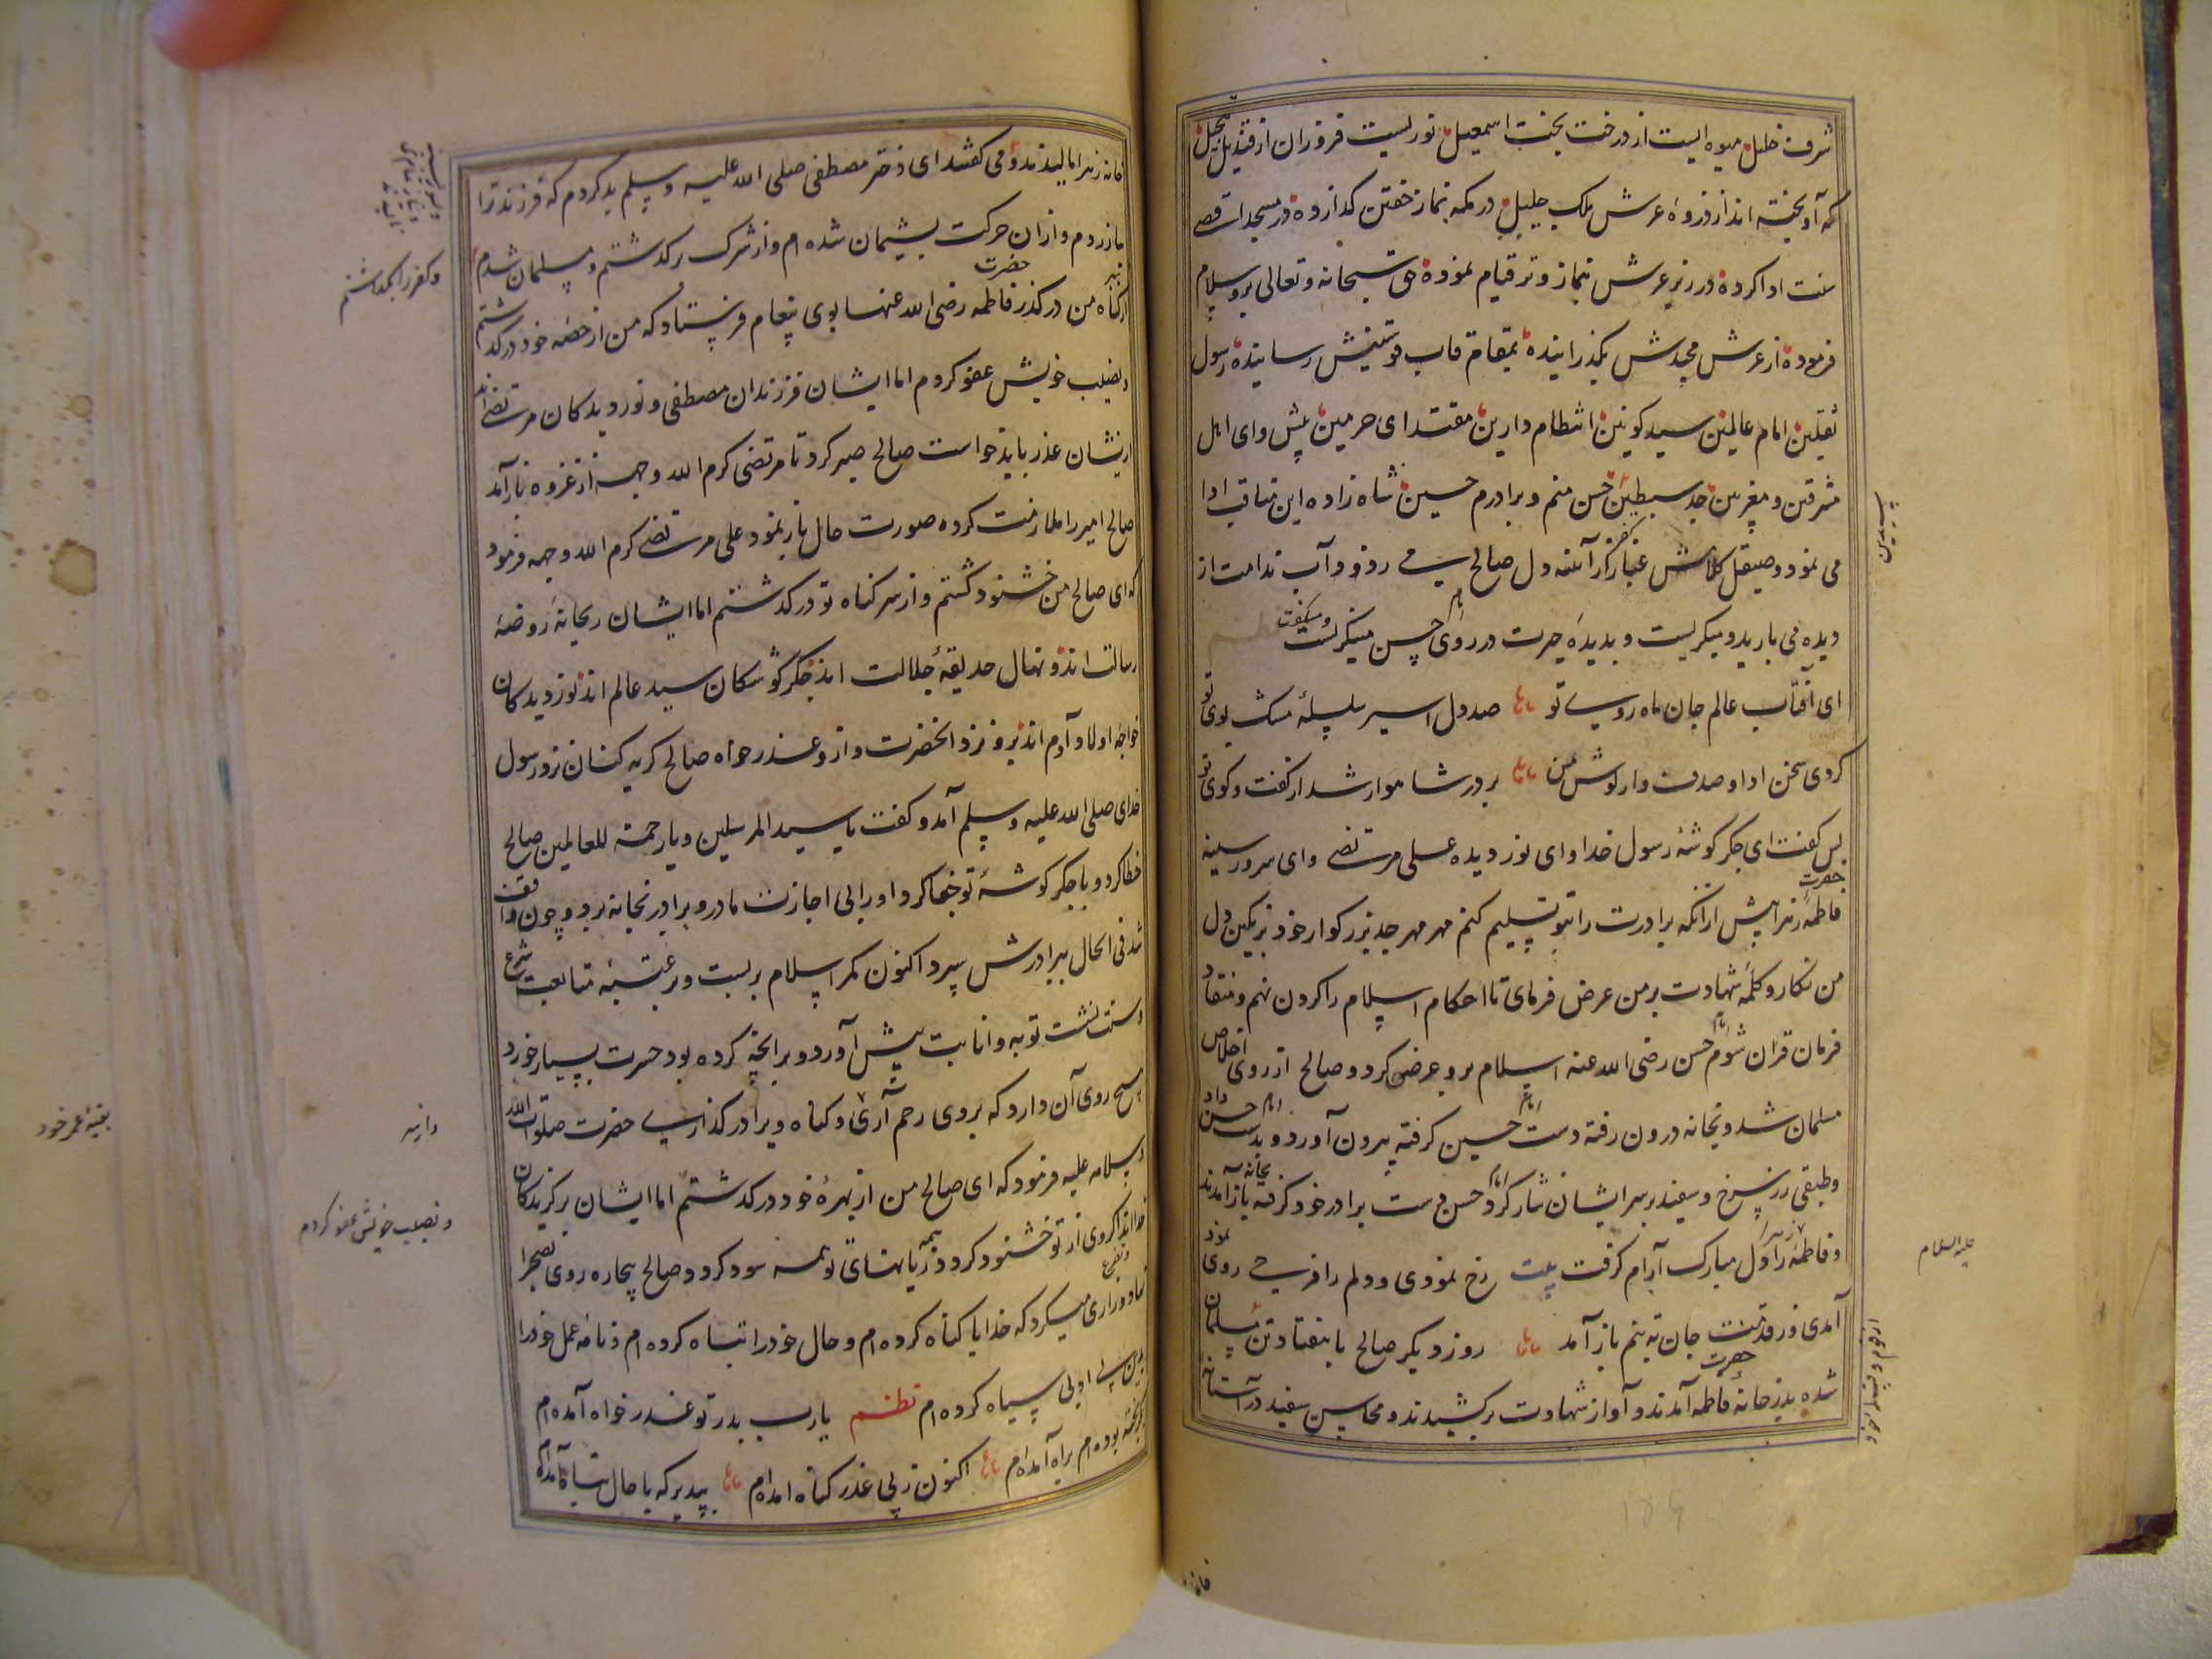 شرف خلیل میوه ایست از درخت بخت اسمعیل نوریست فروزان از قندیل تبجیل
که آویخته اند از ذروه عرش ملک جلیل در مکه نماز خفتن گذارده در مسجد اقصی
سنت ادا کرده در زیر عرش نماز وتر قیام نموده حق سبحانه وتعالی برو سلام
فرموده از عرش مجیدش بگذرانیده بمقام قاب قوسینش رسانیده رسول
ثقلین امام عالمین سید کونین انتظام دارین مقتدای حرمین پیش وای اهل
مشرقین و مغربین جد سبطین حسن منم و برادرم حسین شاه زاده این مناقب ادا
می نمود و صیقل کلامش غبار کفر از آئنه دل صالح می زدود و آب ندامت از
دیده می بارید و میگریست و بدیدهٔ حیرت در روی امام حسن مینگریست و میگفت
ای آفتاب عالم جان ماه روی تو صد دل اسیر سلسلهٔ مشک بوی تو
کردی سخن ادا و صدف وار گوش من پر در شاهوار شد از گفت و گوی تو
پس گفت ای جگر گوشهٔ رسول خدا و ای نور دیده علی مرتضی وای سرور سینه
حضرت فاطمهٔ زهرا پیش ازانکه برادرت را بتو تسلیم کنم مهر مهر جد بزرگوار خود بر نگین دل
من نگار و کلمهٔ شهادت بر من عرض فرمای تا احکام اسلام را گردن نهم و منقاد
فرمان قرآن شوم امام حسن رضی الله عنه اسلام برو عرض کرد و صالح از روی اخلاص
مسلمان شد و بخانه درون رفته دست امام حسین گرفته بیرون آورد و بدست امام حسن داد
و طبقی زر سرخ و سفید بر سر ایشان نثار کرد امام حسن دست برادر خود گرفته بخانه باز آمدند
و فاطمهٔ زهرا را دل مبارک آرام گرفت بیت رخ نمودی و دلم را فرحی روی نمود
آمدی و ز قدمت جان به تنم باز آمد روز دیگر صالح با هفتاد تن مسلمان
شده بدر خانهٔ حضرت فاطمه آمدند و آواز شهادت برکشیدند و محاسن سفید در آستانهٔ
علیه السلام
خانه زهرا مالیدند و می گفتند ای دختر مصطفی صلی الله علیه وسلم بد کردم که فرزند ترا
بیازردم و ازان حرکت پشیمان شده ام و از شرک برگذشتم و مسلمان شدم
از گناه من درگذر حضرت فاطمه رضی الله عنها بوی پیغام فرستاد که من از حصهٔ خود درگذشتم
و نصیب خویش عفو کردم اما ایشان فرزندان مصطفی و نور دیدگان مرتضی اند
ازیشان عذر باید خواست صالح صبر کرد تا مرتضی کرم الله وجهه از غزوه باز آمد
صالح امیر را ملازمت کرده صورت حال باز نمود علی مرتضی کرم الله وجهه فرمود
که ای صالح من خشنود گشتم و از سر گناه تو درگذشتم اما ایشان ریحانهٔ روضهٔ
رسالت اند و نهال حدیقهٔ جلالت اند جگر گوشگان سید عالم اند نور دیدگان
خواجهٔ اولاد آدم اند برو نزد آنحضرت و ازو عذر خواه صالح گریه کنان نزد رسول
خدای صلی الله علیه وسلم آمد و گفت یا سید المرسلین و یا رحمة للعالمین صالح
خطا کرد و با جگر گوشهٔ تو جفا کرد او را بی اجازت مادر و برادر بخانه برد و چون واقف
شد فی الحال ببرادرش سپرد اکنون کمر اسلام بر بست و بر عتبهٔ متابعت شرع
و سنت نشست توبه و انابت پیش آورد و برآنچه کرده بود حسرت بسیار خورد
هیچ روی آن دارد که بروی رحم آری و گناه ویرا درگذاری حضرت صلوات الله
و سلامه علیه فرمود که ای صالح من از بهرهٔ خود درگذشتم اما ایشان برگزیدگان
خدا اند اگر وی از تو خشنود گردد همه زیانهای تو همه سود گردد صالح بیچاره روی بصحرا
نهاد و زاری و تضرع میکرد که خدایا گناه کرده ام و حال خود را تباه کرده ام و نامهٔ عمل خود را
بدین بی ادبی سیاه کرده ام نظم یارب بدر تو عذر خواه آمده ام
بگریخته بودم براه آمده ام اکنون ز پی عذر گناه آمده ام بپذیر که با حال تباه آمده ام
و کفر را بگذاشتم
دارنه
و نصیب خویش عفو کردم
بقیهٔ عمر خود